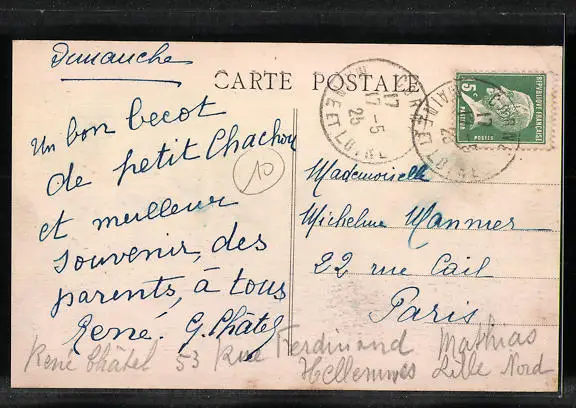 Dimanche
CARTE POSTALE
Un bon becot
de petit Chachou
et meilleur
souvenir, des
parents, à tous
René. G. Châtel
10
Mademoiselle
Micheline Mannier
22 rue Cail
Paris
René Châtel 53 Rue Ferdinand Mathias
Hellemmes Lille Nord
17
17 - 5
25
ET LOIRE
5
RÉPUBLIQUE FRANÇAISE
PASTEUR
POSTES
ET LOIRE